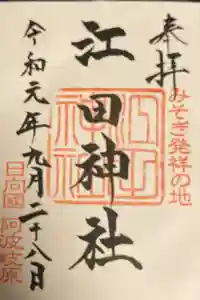 奉拝
みそぎ発祥の地
江田神社
江田神社
令和元年九月二十八日
日向國
阿波岐原